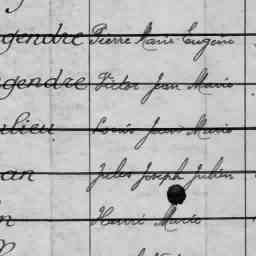 gendre Pierre Marie Eugène
gendre Victor Jean Marie
ulieu Louis Jean Marie
an Jules Joseph Julien
n Henri Marie